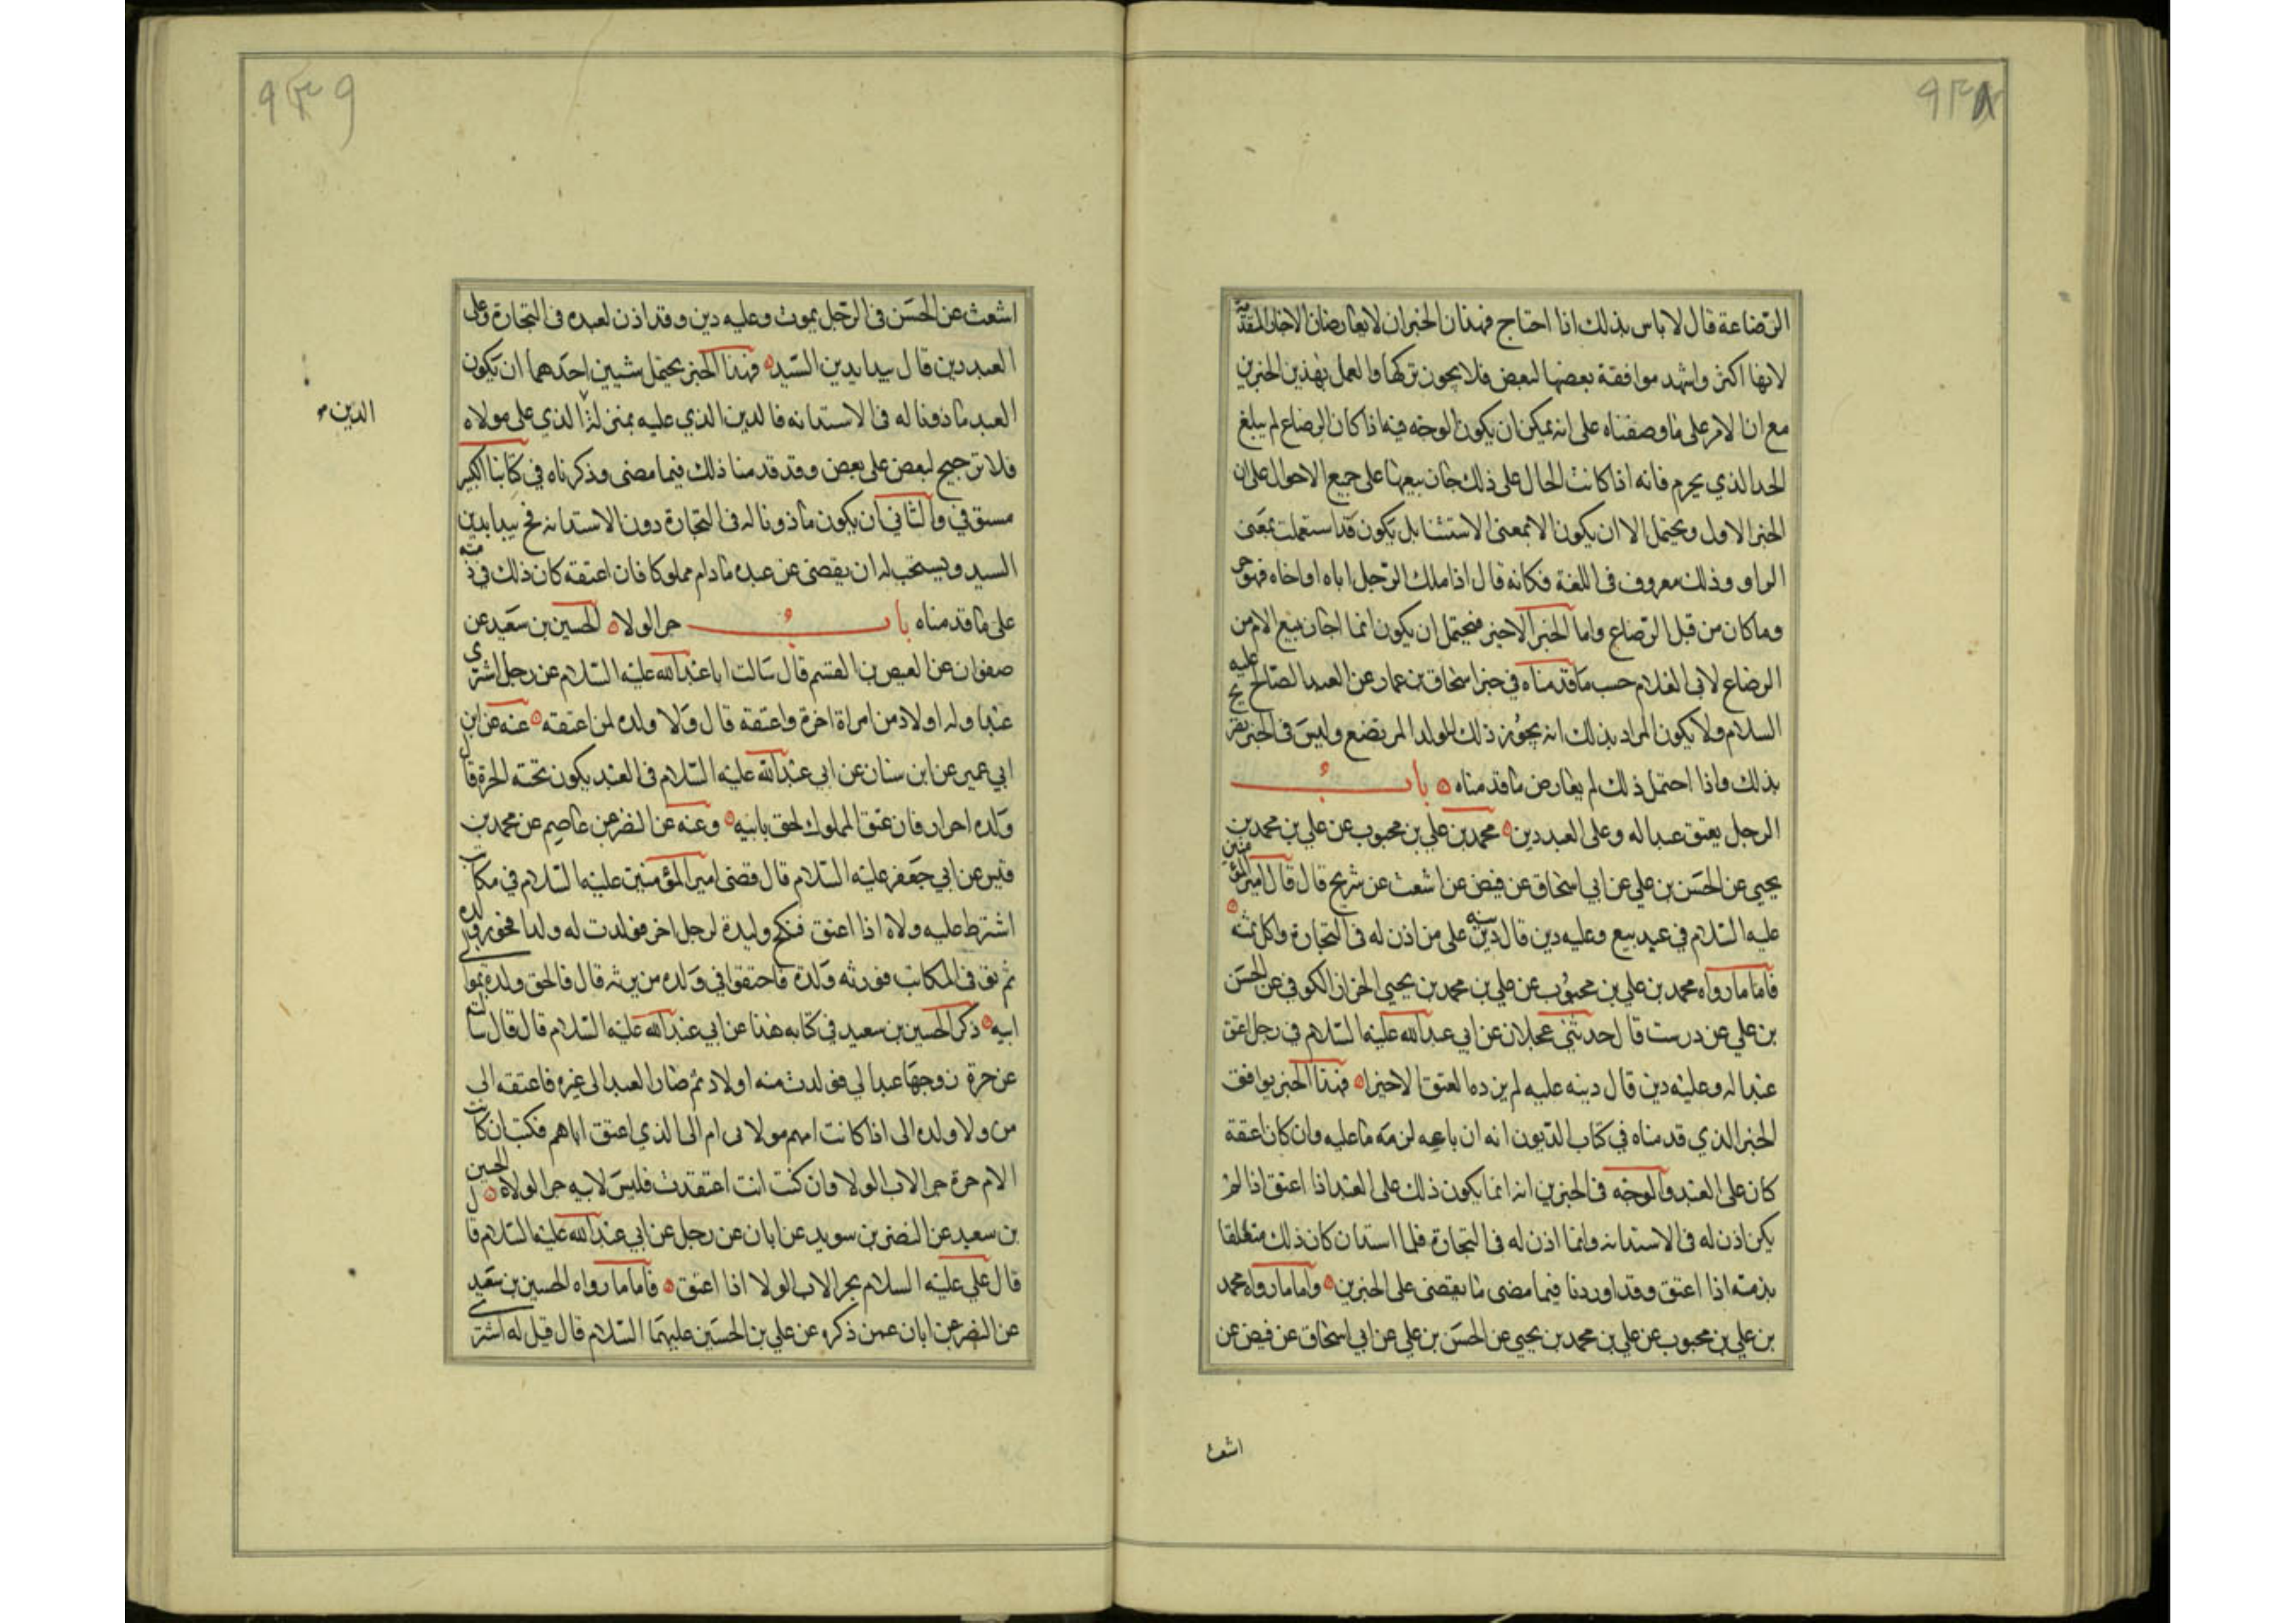 ٩٣٨
الرضاعة قال لا باس بذلك اذا احتاج فهذان الخبران لا يعارضان الاخبار المتقدمة
لانها اكثر واشهد موافقة بعضها لبعض فلا يجوز تركها والعمل بهذين الخبرين
مع ان الامر على ما وصفناه على انه يمكن ان يكون الوجه فيه اذا كان الرضاع لم يبلغ
الحد الذي يحرم فانه اذا كانت الحال على ذلك جاز بيعها على جميع الاحوال على ان
الخبر الاول ويحتمل الا ان يكون الا بمعنى الاستثنا بل يكون قد استعملت بمعنى
الواو وذلك معروف في اللغة فكانه قال اذا ملك الرجل اباه او اخاه فهو حر
وما كان من قبل الرضاع واما الخبر الاخير فيحتمل ان يكون انما اجاز بيع الام من
الرضاع لابى الغلام حسب ما قدمناه في خبر اسحاق بن عمار عن العبد الصالح عليه
السلام ولا يكون المراد بذلك انه يجوز ذلك للولد المرتضع وليس في الخبر تصريح
بذلك واذا احتمل ذلك لم يعارض ما قدمناه باب
الرجل يعتق عبدا له وعلى العبد دين محمد بن علي بن محبوب عن علي بن محمد بن
يحيى عن الحسن بن علي عن ابي اسحاق عن فيض عن اشعث عن شريح قال قال امير المؤمنين
عليه السلام في عبد بيع وعليه دين قال دينه على من اذن له في التجارة واكل ثمنه
فاما ما رواه محمد بن علي بن محبوب عن علي بن محمد بن يحيى الخزاز الكوفي عن الحسن
بن علي عن درست قال حدثني عجلان عن ابي عبد الله عليه السلام في رجل اعتق
عبدا له وعليه دين قال دينه عليه لم يزده العتق الا خيرا فهذا الخبر يوافق
الخبر الذي قدمناه في كتاب الديون انه ان باعه لزمه ما عليه وان كان اعتقه
كان على العبد والوجه في الخبرين انه انما يكون ذلك على العبد اذا اعتق اذا لم
يكن اذن له في الاستدانه وانما اذن له في التجارة فلما استدان كان ذلك متعلقا
بذمته اذا اعتق وقد اوردنا فيما مضى ما يقضى على الخبرين واما ما رواه محمد
بن علي بن محبوب عن علي بن محمد بن يحيى عن الحسن بن علي عن ابي اسحاق عن فيض عن
اشعث
٩٣٩
اشعث عن الحسن في الرجل يموت وعليه دين وقد اذن لعبده في التجارة وعلى
العبد دين قال يبدا بدين السيد فهذا الخبر يحتمل شيئين احدهما ان يكون
العبد ماذونا له في الاستدانه فالدين الذي عليه بمنزلة الذي على مولاه
الدين
فلا ترجيح لبعض على بعض وقد قدمنا ذلك فيما مضى وذكرناه في كتابنا الكبير
مستوفى والثاني ان يكون ماذونا له في التجارة دون الاستدانه فح يبدا بدين
السيد ويستحب له ان يقضى عن عبده ما دام مملوكا فان اعتقه كان ذلك في ذمته
على ما قدمناه باب جر الولاء الحسين بن سعيد عن
صفوان عن العيص بن القسم قال سالت ابا عبد الله عليه السلام عن رجل اشترى
عبدا وله اولاد من امراة اخرة واعتقه قال ولا ولده لمن اعتقه عنه عن ابن
ابي عمير عن ابن سنان عن ابي عبد الله عليه السلام في العبد يكون تحته الحرة قال
ولده احرار فان عتق المملوك لحق بابيه وعنه عن النضر عن عاصم عن محمد بن
قيس عن ابي جعفر عليه السلام قال قضى امير المؤمنين عليه السلام في مكاتب
اشترط عليه ولاه اذا اعتق فنكح وليدة لرجل اخر فولدت له ولدا فحرر ولده
ثم توفى المكاتب فورثه ولده فاختلفوا في ولده من يرثه قال فالحق ولده بموالى
ابيه ذكر الحسين بن سعيد في كتابه هذا عن ابي عبد الله عليه السلام قال قال سالته
عن حرة زوجها عبدا لي فولدت منه اولاد ثم صار العبد الى غيره فاعتقه الى
من ولا ولده الى اذا كانت امهم مولاتى ام الى الذي اعتق اباهم فكتب ان كانت
الام حرة جر الاب الولا وان كنت انت اعتقت فليس لابيه جر الولاء الحسين
بن سعيد عن النضر بن سويد عن ابان عن رجل عن ابي عبد الله عليه السلام قال
قال علي عليه السلام يجر الاب الولا اذا اعتق فاما ما رواه الحسين بن سعيد
عن النضر عن ابان عمن ذكره عن علي بن الحسين عليهما السلام قال قيل له اشترى